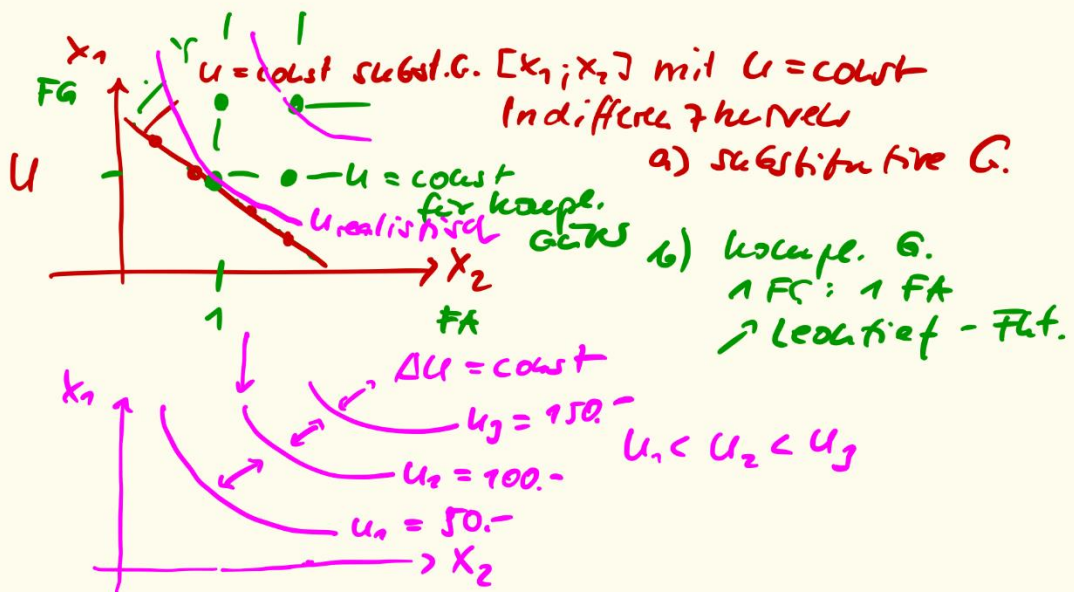 X₁
FG
U = const subst. G. [X₁; X₂] mit U = const
Indifferenzkurven
a) substitutive G.
U
U = const
für kompl.
U realistisch
b) kompl. G.
1 FG : 1 FA
↗ Leontief - Fkt.
X₂
1
FA
X₁
ΔU = const
U₃ = 150.-
U₁ < U₂ < U₃
U₂ = 100.-
U₁ = 50.-
X₂